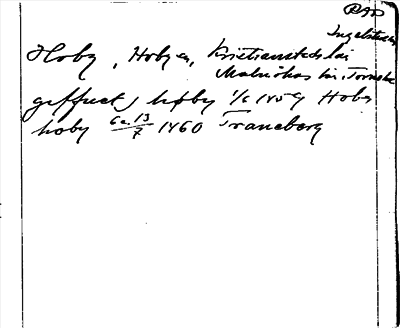 RAP
Ingelstads
Hoby, Hobyen, Kristianstads län
Malmöhus län, Torna hd
geffuet, høby 1/6 1459 Hoby
hoby ca 13/7 1460 Traneberg